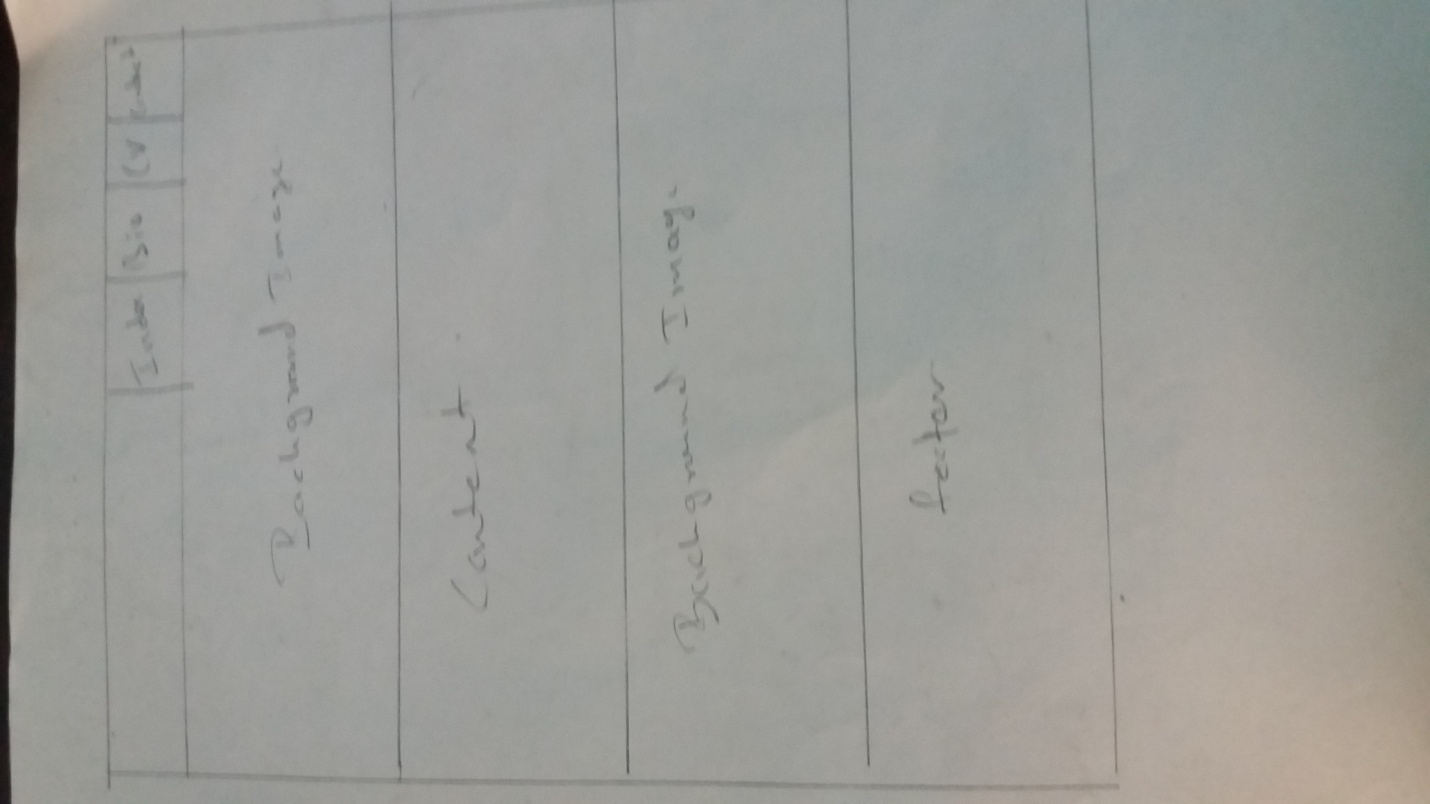 Bio
CV
Background Image
Content
Background Image
footer